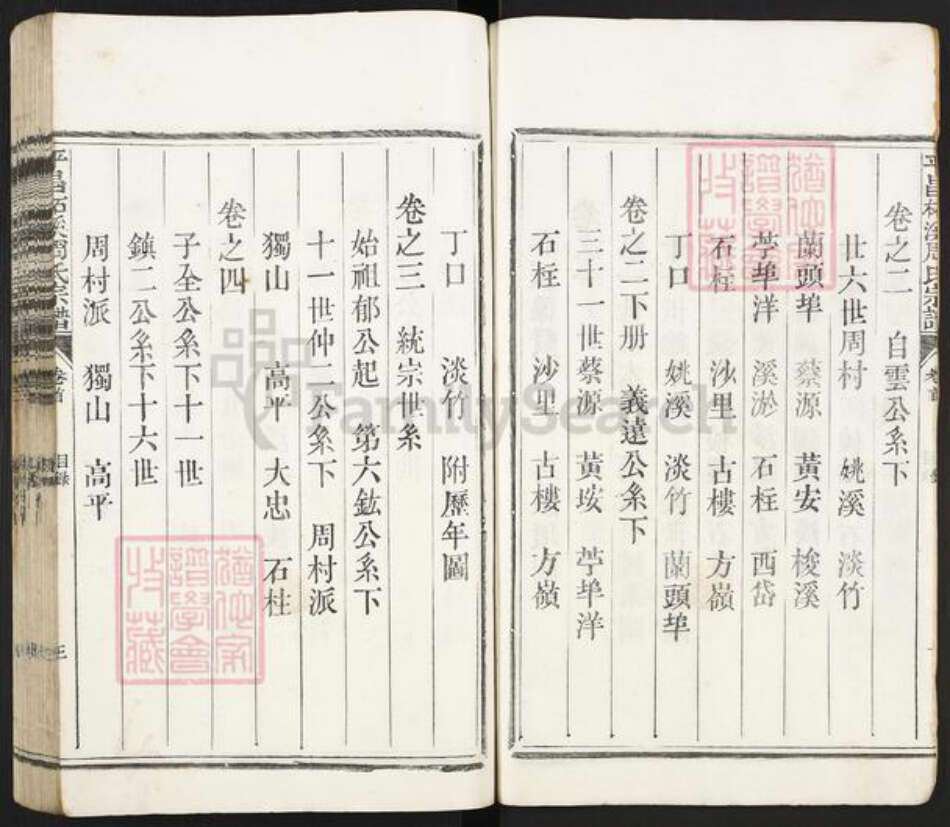 卷之二 白雲公系下
廿六世周村 姚溪 淡竹
蘭頭埠 蔡源 黃安 梭溪
苧埠洋 溪淤 石柱 西岱
石柱 沙里 古樓 方嶺
丁口 姚溪 淡竹 蘭頭埠
卷之二下册 義遠公系下
三十一世蔡源 黃垵 苧埠洋
石柱 沙里 古樓 方嶺
丁口 淡竹 附歷年圖
卷之三 統宗世系
始祖郁公起 第六鈜公系下
十一世仲二公系下 周村派
獨山 高平 大忠 石柱
卷之四
子全公系下十一世
鎮二公系下十六世
周村派 獨山 高平
周氏宗譜 卷首 目錄
FamilySearch
譜學會
收藏